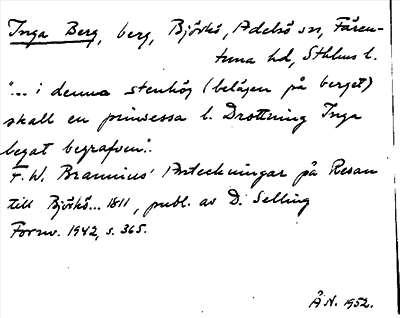 Inga Berg, berg, Björkö, Adelsö sn, Fären-
tuna hd, Sthlms l.
"... i denna stenhög (belägen på berget)
skall en prinsessa l. Drottning Inga
legat begrafven".
F. W. Brannius' Anteckningar på Resan
till Björkö... 1811, publ. av D. Selling
Fornv. 1942, s. 365.
Å N. 1952.